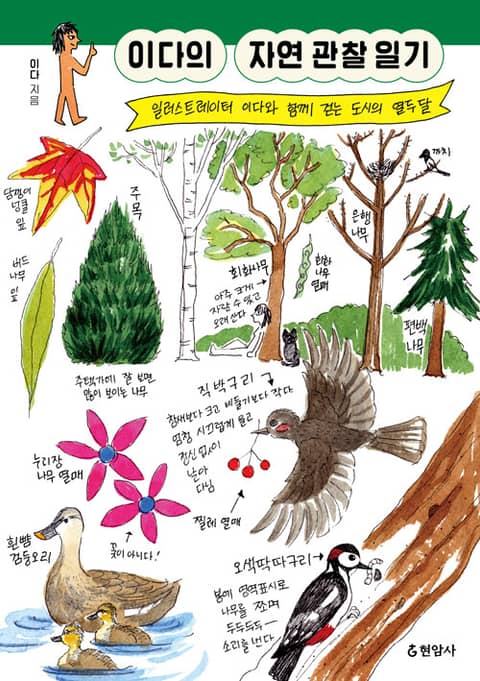 이다 지음
이다의 자연 관찰 일기
일러스트레이터 이다와 함께 걷는 도시의 열두 달
담쟁이
덩쿨
잎
버드
나무
잎
주목
주택가에 잘 보면
많이 보이는 나무
회화나무
아주 크게
자랄 수 있고
오래 산다
회화
나무
열매
은행
나무
까치
편백
나무
직박구리
참새보다 크고 비둘기보다 작다
엄청 시끄럽게 울고
정신없이
날아
다님
찔레 열매
누리장
나무 열매
꽃이 아니다!
흰뺨
검둥오리
오색딱따구리
봄에 영역표시로
나무를 쪼며
두두두두-
소리를 낸다
현암사